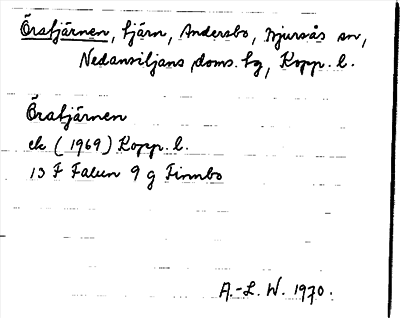 Örafjärnen, tjärn, Andersbo, Bjursås sn,
Nedansiljans doms. hg, Kopp. l.
Örafjärnen
ek (1969) Kopp. l.
13 F Falun 9 g Finnbo
A.-L. W. 1970.